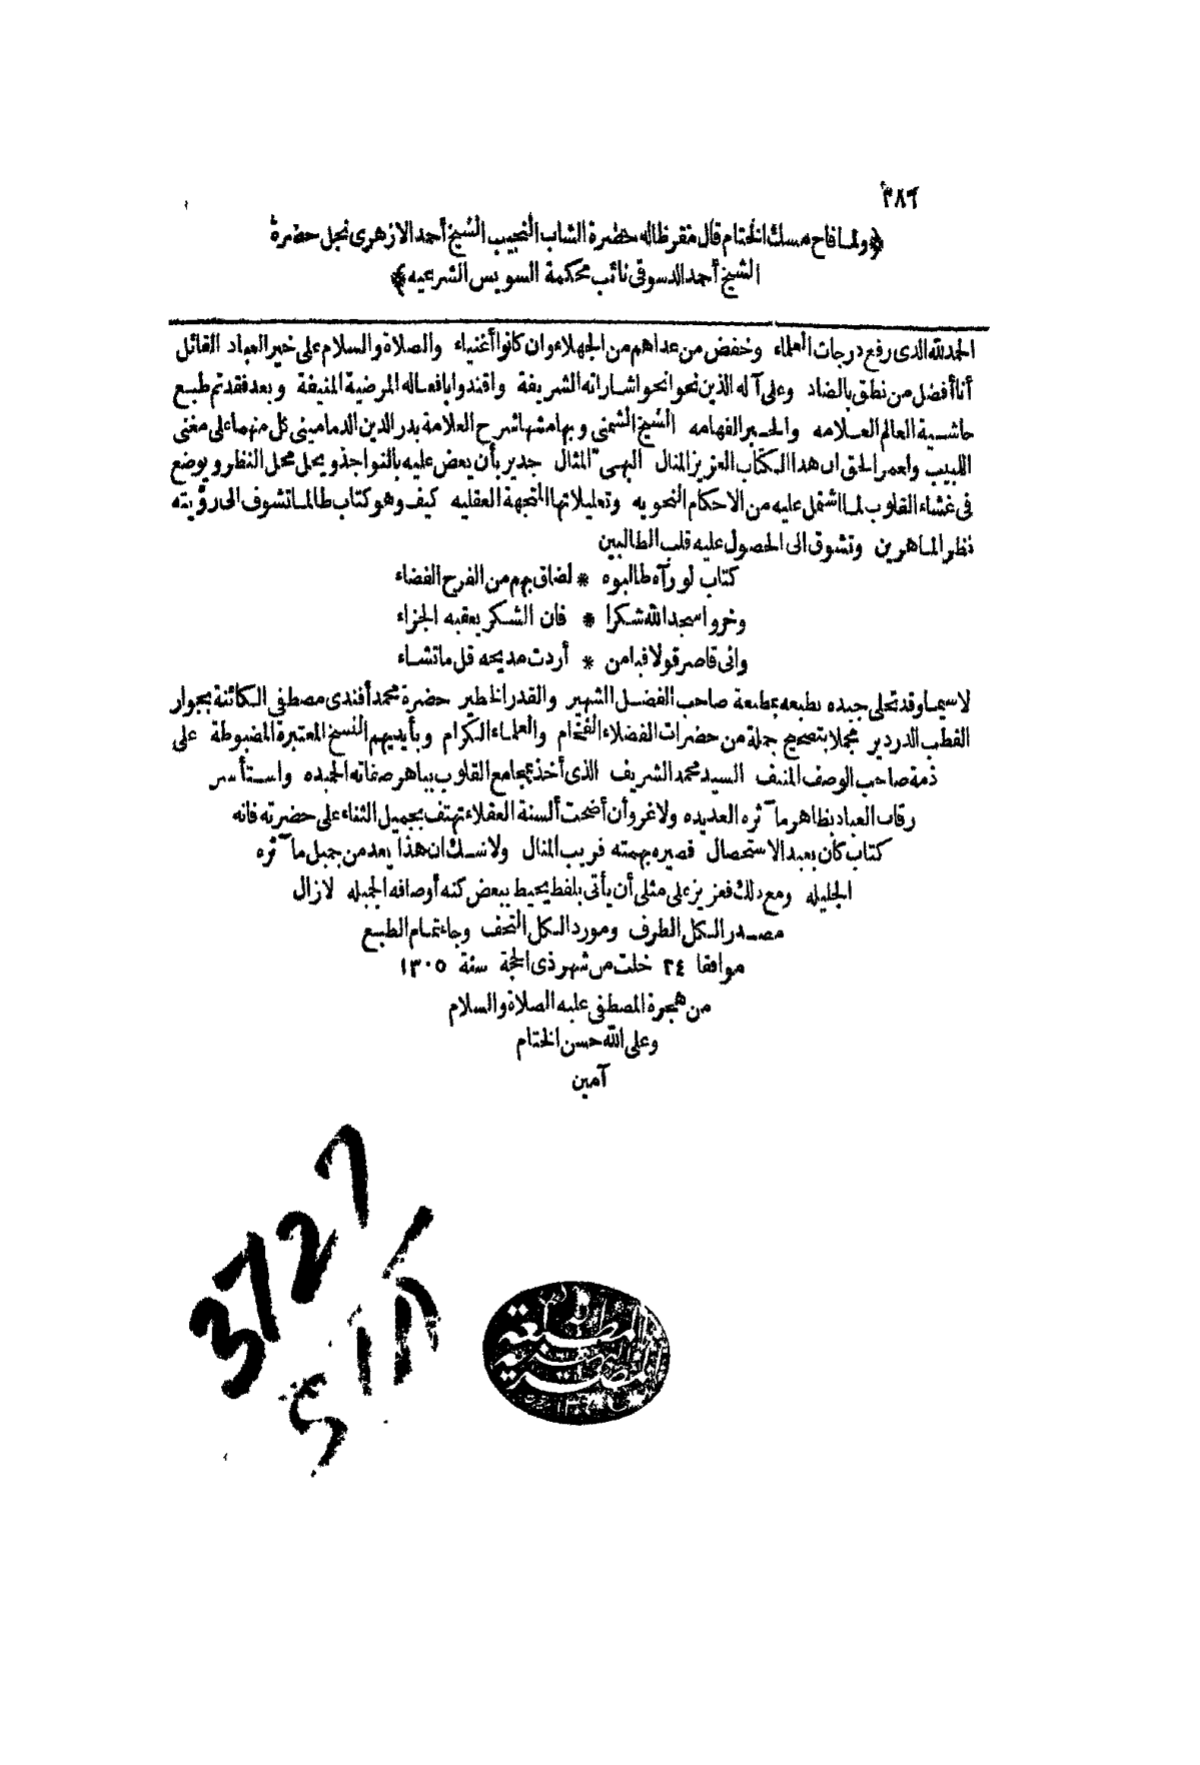 ٢٨٦
﴿ولما فاح مسك الختام قال مقرظا له حضرة الشاب النجيب الشيخ أحمد الازهرى نجل حضرة
الشيخ أحمد الدسوقى نائب محكمة السويس الشرعيه﴾
الحمد لله الذى رفع درجات العلماء وخفض من عداهم من الجهلاء وان كانوا أغنياء والصلاة والسلام على خير العباد القائل
أنا أفضل من نطق بالضاد وعلى آله الذين نحو انحو اشاراته الشريفة واقتدوا بافعاله المرضية المنيفة وبعد فقد تم طبع
حاشية العالم العلامه والحبر الفهامه الشيخ الشمنى وبهامشها شرح العلامة بدر الدين الدمامينى كل منهما على مغنى
اللبيب ولعمر الحق ان هذا الكتاب العزيز المنال البهى المثال جدير بأن يعض عليه بالنواجذ ويحمل محمل النظر ويوضع
فى غشاء القلوب لما اشتمل عليه من الاحكام النحويه وتعليلاتها المتجهة العقليه كيف وهو كتاب طالما تشوف الى رؤيته
نظر الماهرين وتشوق الى الحصول عليه قلب الطالبين
كتاب لو رآه طالبوه * لضاق بهم من الفرح الفضاء
وخروا سجدا لله شكرا * فان الشكر يعقبه الجزاء
وانى قاصر قولا فيا من * أردت مديحه قل ما تشاء
لاسيما وقد تحلى جيده بطبعه بمطبعة صاحب الفضل الشهير والقدر الخطير حضرة محمد أفندى مصطفى الكائنة بجوار
القطب الدردير مجملا بتصحيح جملة من حضرات الفضلاء الفخام والعلماء الكرام وبأيديهم النسخ المعتبرة المضبوطة على
ذمة صاحب الوصف المنيف السيد محمد الشريف الذى أخذ بمجامع القلوب بباهر صفاته الحميده واستأسر
رقاب العباد بظاهر مآثره العديده ولا غرو أن أضحت ألسنة العقلاء تهتف بجميل الثناء على حضرته فانه
كتاب كان بعيد الاستحصال فصيره بهمته قريب المنال ولا شك ان هذا يعد من جميل مآثره
الجليله ومع ذلك فعزيز على مثلى أن يأتى بلفظ يحيط ببعض كنه أوصافه الجميله لازال
مصدرا لكل الطرف وموردا لكل التحف وجاء تمام الطبع
موافقا ٢٤ خلت من شهر ذى الحجة سنة ١٣٠٥
من هجرة المصطفى عليه الصلاة والسلام
وعلى الله حسن الختام
آمين
3727
المطبعة
البهية
المصرية